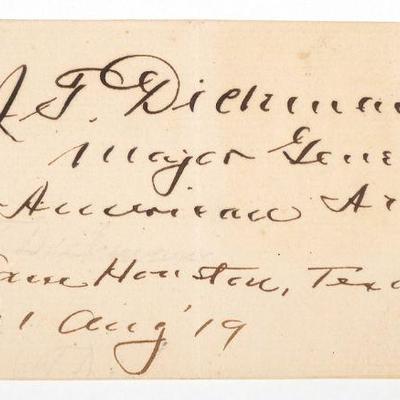 J. T. Dickman
Major Gene
American Ar
Sam Houston, Texa
1 Aug '19